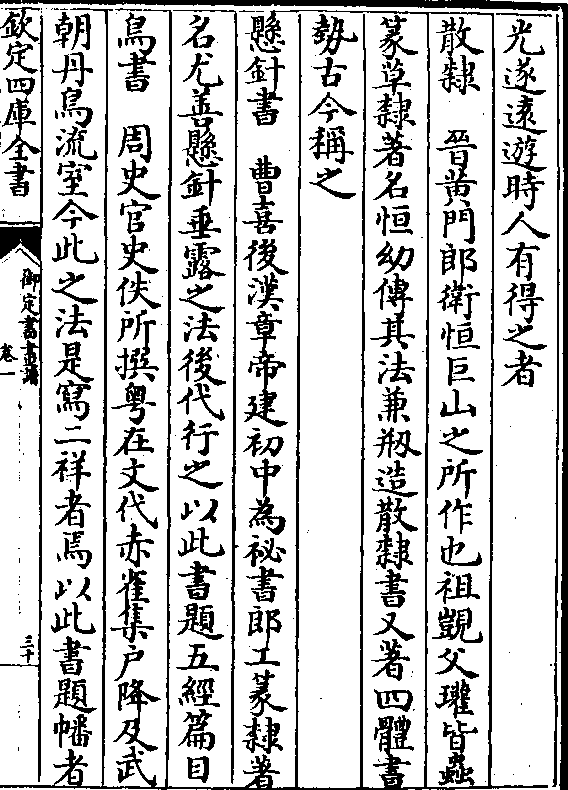 光遂遠遊時人有得之者
散隸　晉黄門郎衛恒巨山之所作也祖覬父瓘皆蟲
篆草隸著名恒幼傳其法兼剏造散隸書又著四體書
勢古今稱之
懸針書　曹喜後漢章帝建初中為祕書郎工篆隸著
名尤善懸針垂露之法後代行之以此書題五經篇目
鳥書　周史官史佚所撰粤在文代赤雀集户降及武
朝丹烏流室今此之法是寫二祥者焉以此書題幡者
欽定四庫全書
御定書畫譜
卷一
三十